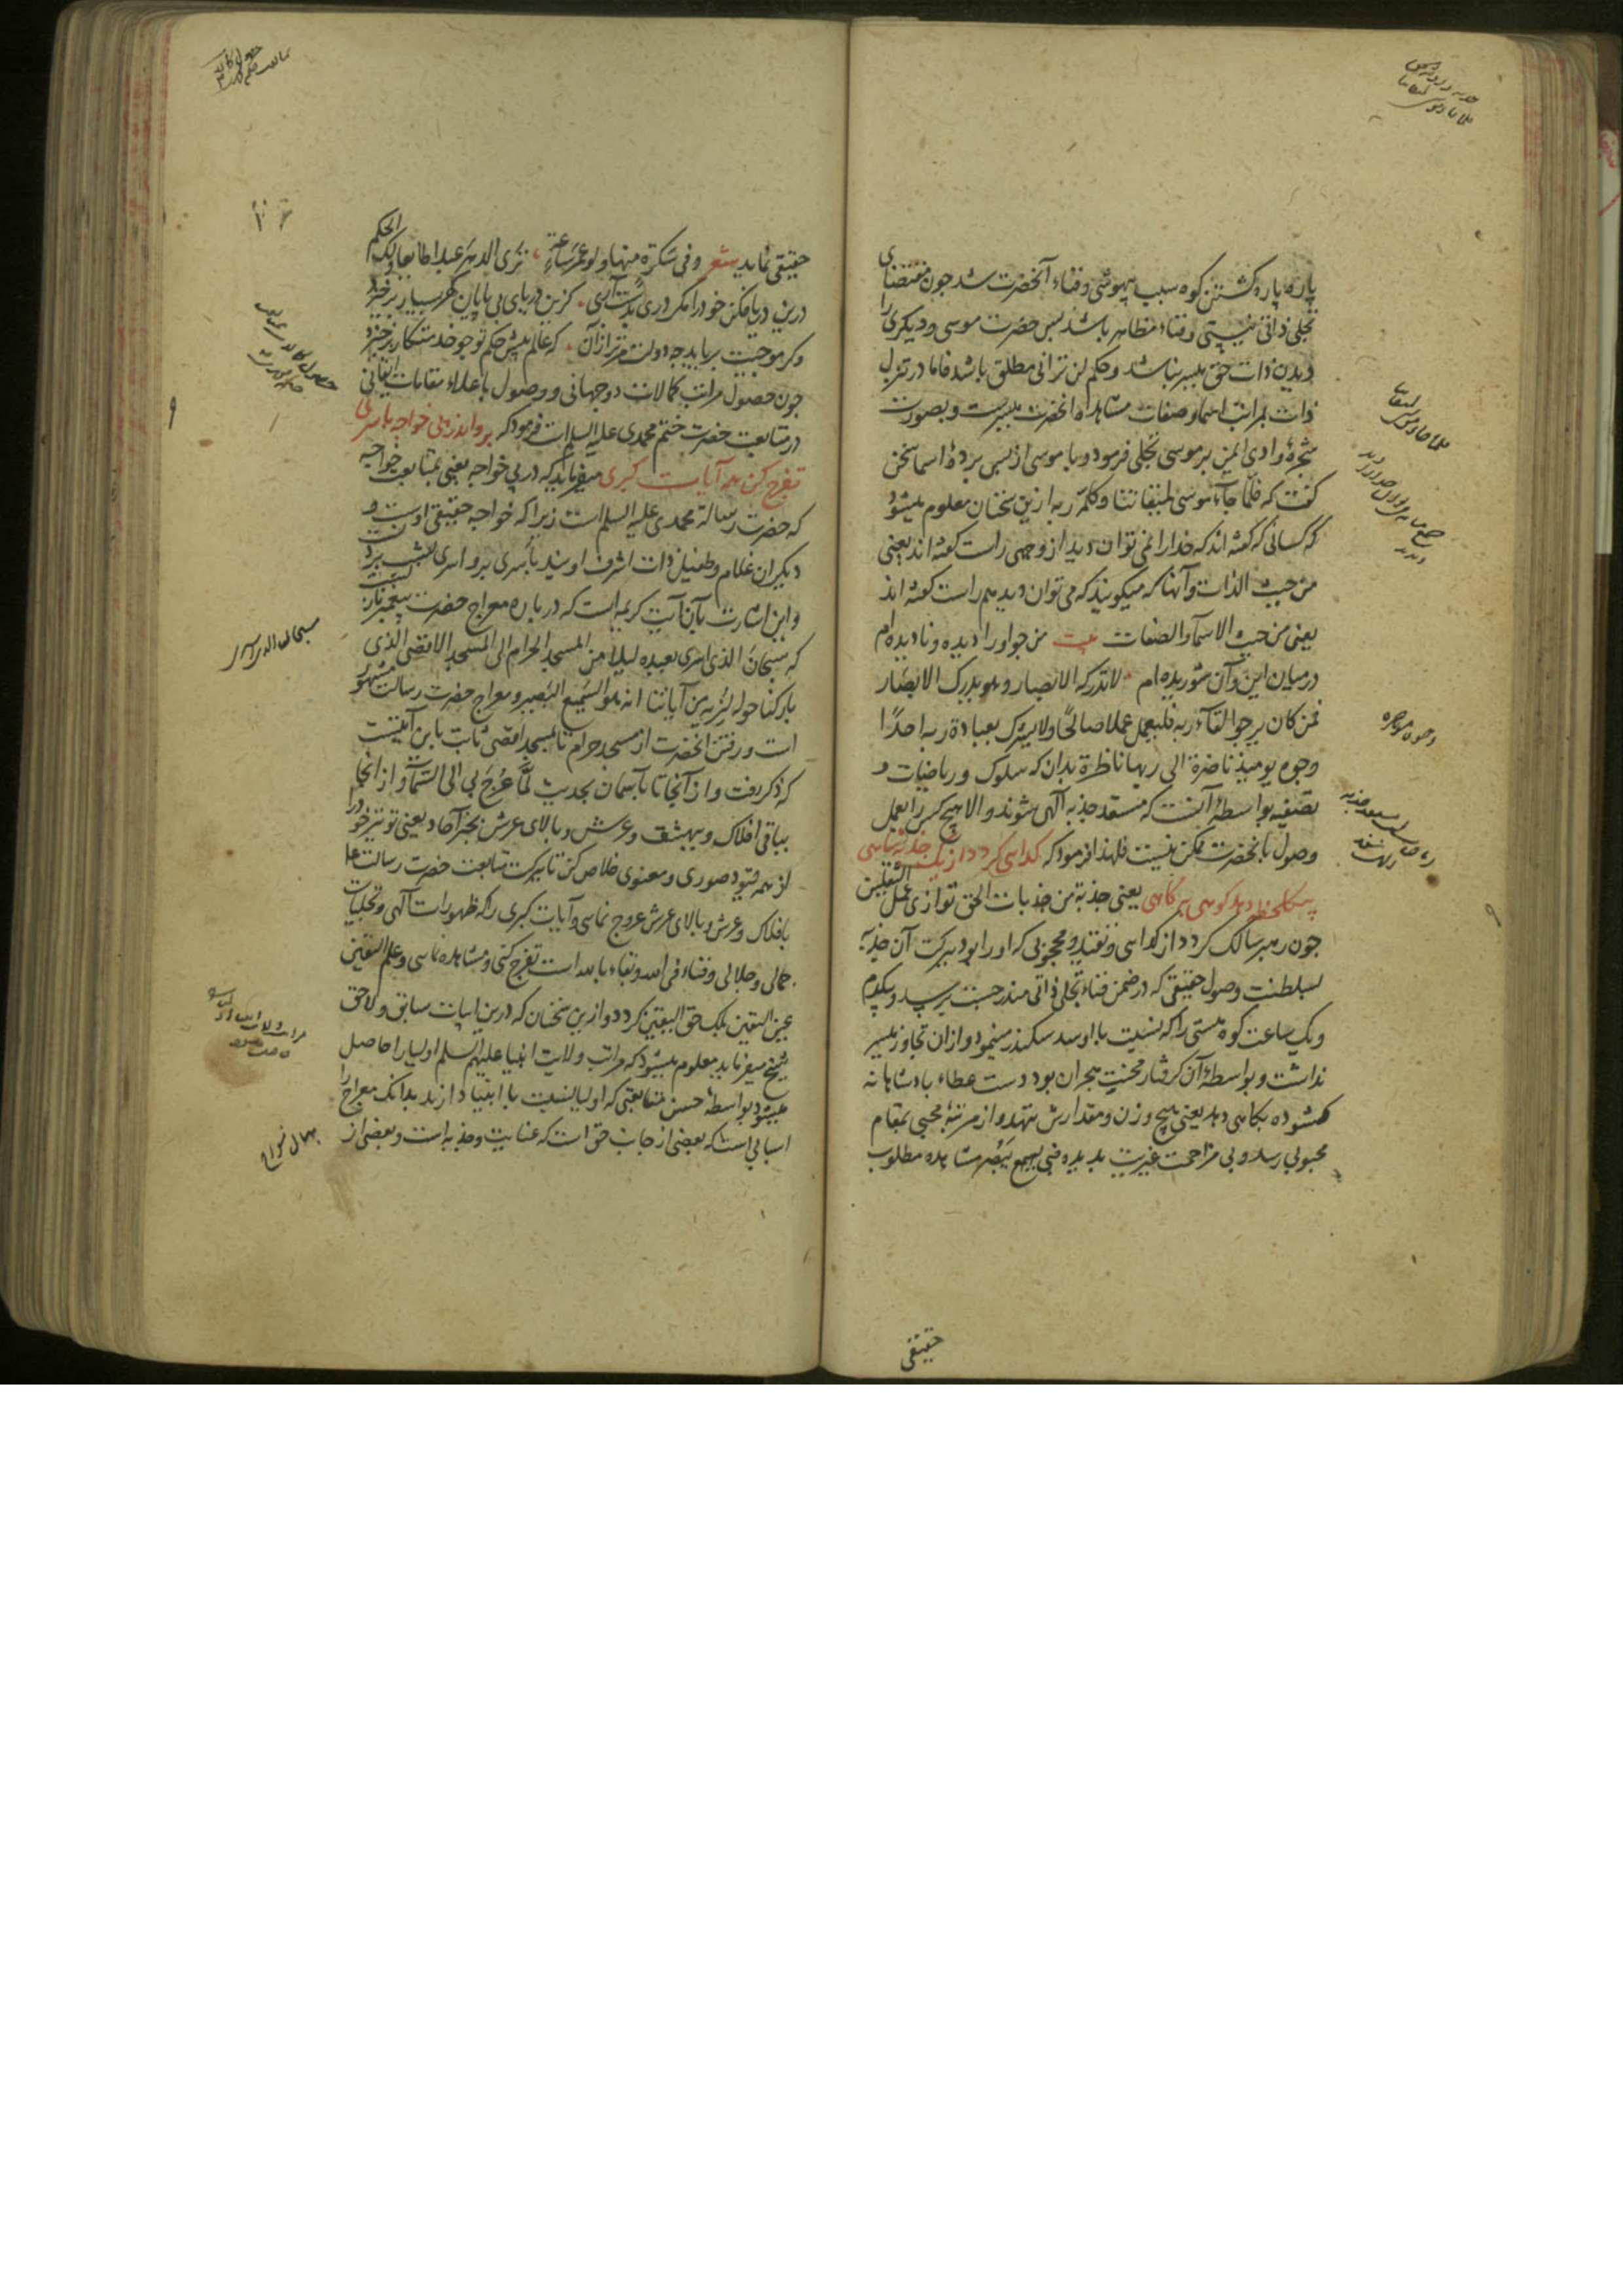 پاره پاره گشتن کوه سبب بیهوشی و فناء آنحضرت شد جون مقتضای
تجلی ذاتی نیستی و فناء مظاهر باشد پس حضرت موسی و دیکری را
دیدن ذات حق میسر نباشد و حکم لن ترانی مطلق باشد فاما در تنزل
ذات بمراتب اسما و صفات مشاهده آنحضرت میسرست و بصورت
شجرهٔ وادی ایمن بر موسی تجلی فرمود و با موسی از پس پردهٔ اسما سخن
گفت که فلما جاء موسی لمیقاتنا و کلمه ربه ازین سخنان معلوم میشود
که کسانی که گفته اند که خدا را نمی توان دید از وجهی راست گفته اند یعنی
من حیث الذات و آنها که میکویند که می توان دید هم راست گفته اند
یعنی من حیث الاسمآء و الصفات بیت من جو او را دیده و نادیده ام
درمیان این و آن شوریده ام لا تدرکه الابصار و هو یدرک الابصار
فمن کان یرجوا لقآء ربه فلیعمل عملا صالحًا و لا یشرک بعبادة ربه احدًا
وجوه یومیذ ناضرة الی ربها ناظرة بدان که سلوک و ریاضات و
تصفیه بواسطهٔ آنست که مستعد جذبه آلهی شوند و الا هیچ کس را بعمل
وصول بآنحضرت ممکن نیست فلهذا فرمود که کدایی کردد از یک جذبه شاهی
بیک لحظه دهد کوهی بکاهی یعنی جذبة من جذبات الحق توازی عمل الثقلین
جون رهبر سالک کردد از کدایی و تقید و محجوبی که او را بود ببرکت آن جذبه
بسلطنت وصول حقیقی که در ضمن فناء تجلی ذاتی مندرجست برسد و بیکدم
و یک ساعت کوه هستی را که نسبت با او سد سکندر مینمود و ازان تجاوز میسر
نداشت و بواسطهٔ آن گرفتار محنت هجران بود دست عطاء بادشاهانه
گشوده بکاهی دهد یعنی هیچ وزن و مقدارش ننهد و از مرتبهٔ محبی بمقام
محبوبی رسد و بی مزاحمت غیریت بدیده فبی یسمع و بی یبصر مشاهده مطلوب
حقیقی
حقیقی نماید شعر و فی سکرة منها و لو عمر ساعة تری الدهر عبدا طائعا و لک الحکم
درین دریا فکن خود را مکر دری بدست آری کزین دریای بی پایان کهر بسیار برخیزد
و کر موجیت برباید چه دولت مر ترا زان که عالم پیش حکم تو جو خدمتکار برخیزد
جون حصول مراتب کمالات دوجهانی و وصول باعلاء مقامات ایقانی
در متابعت حضرت ختم محمدی علیه السلام است فرمود که برو اندر پی خواجه باسری
تفرج کن همه آیات کبری میفرماید که در پی خواجه یعنی بمتابعت خواجه
که حضرت رسالة محمدی علیه السلم است زیرا که خواجه حقیقی اوست و
دیکران غلام و طفیل ذات اشرف اویند باسری برو اسری بشب بردنست
و این اشارت بآن آیت کریمه است که در باره معراج حضرت پیغمبر نازل است
که سبحان الذی اسری بعبده لیلا من المسجد الحرام الی المسجد الاقصی الذی
بارکنا حوله لنریه من آیاتنا انه هو السمیع البصیر و معراج حضرت رسالت مشهور
است و رفتن انحضرت از مسجد حرام تا بمسجد اقصی ثابت باین آیتست
که ذکر رفت و از آنجا تا بآسمان بحدیث لما عرج بی الی السمآء و از انجا
بباقی افلاک و بهشت و عرش و بالای عرش بخبر آحاد یعنی تو نیز خود را
از همه قیود صوری و معنوی خلاص کن تا ببرکت متابعت حضرت رسالت علی
بافلاک و عرش و بالای عرش عروج نمایی و آیات کبری را که ظهورات آلهی و تجلیات
جمالی و جلالی و فناء فی الله و بقاء بالله است تفرج کنی و مشاهده نمایی و علم الیقین
عین الیقین بلک حق الیقین کردد و ازین سخنان که درین ابیات سابق و لاحق
شیخ میفرماید معلوم میشود که مراتب ولایت انبیا علیهم السلم اولیا را حاصل
میشود بواسطهٔ حسن متابعتی که اولیا نسبت با انبیا دارند بدانک معراج را
اسبابی است که بعضی از جانب حق است که عنایت و جذبه است و بعضی از